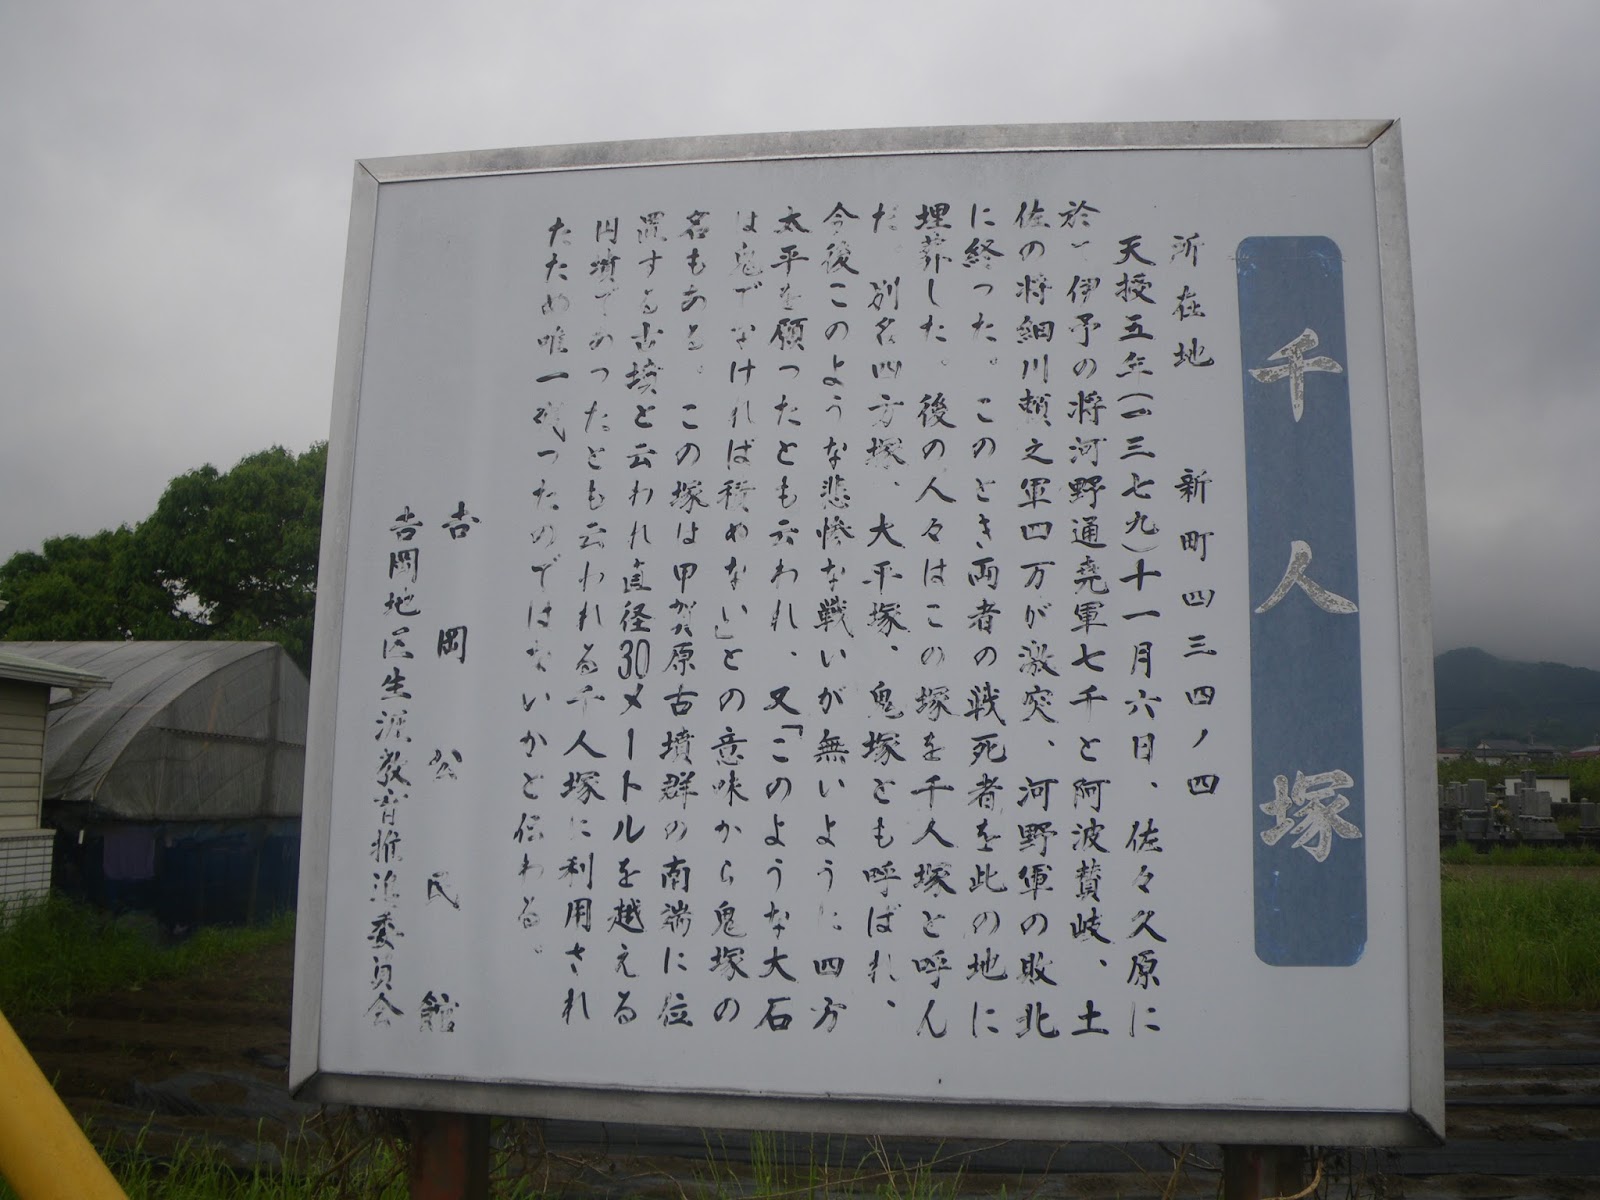 千人塚
所在地　新町四三四ノ四
天授五年(一三七九)十一月六日、佐々久原に
於て伊予の将河野通堯軍七千と阿波賛岐、土
佐の将細川頼之軍四万が激突、河野軍の敗北
に終った。このとき両者の戦死者を此の地に
埋葬した。後の人々はこの塚を千人塚と呼ん
だ。別名四方塚、大平塚、鬼塚とも呼ばれ、
今後このような悲惨な戦いが無いように四方
太平を願ったとも云われ、又「このような大石
は鬼でなければ積めない」との意味から鬼塚の
名もある。この塚は甲賀原古墳群の南端に位
置する古墳と云われ直径30メートルを越える
円墳であったとも云われる千人塚に利用され
たため唯一残ったのではないかと伝わる。
吉岡公民館
吉岡地区生涯教育推進委員会